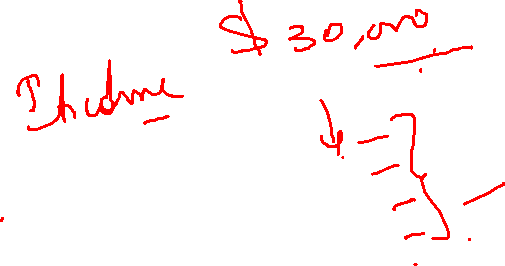 $30,000
Income